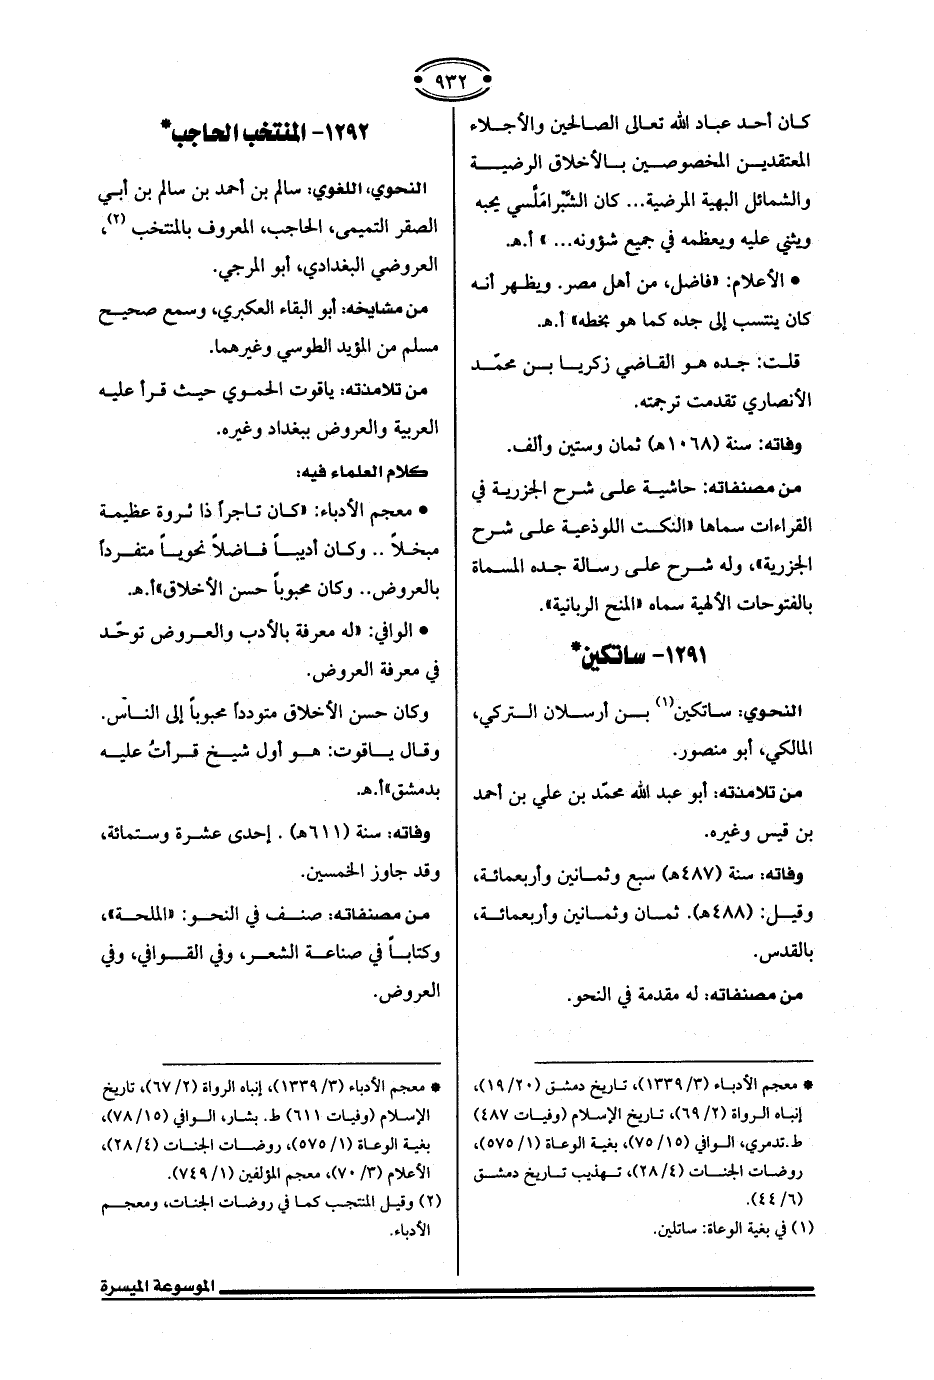 ٩٣٢
كان أحد عباد الله تعالى الصالحين والأجلاء
المعتقدين المخصوصين بالأخلاق الرضية
والشمائل البهية المرضية... كان الشَّبْرامَلِّسي يحبه
ويثني عليه ويعظمه في جميع شؤونه... » أ.هـ.
• الأعلام: «فاضل، من أهل مصر. ويظهر أنه
كان ينتسب إلى جده كما هو بخطه» أ.هـ.
قلت: جده هو القاضي زكريا بن محمّد
الأنصاري تقدمت ترجمته.
وفاته: سنة (١٠٦٨هـ) ثمان وستين وألف.
من مصنفاته: حاشية على شرح الجزرية في
القراءات سماها «النكت اللوذعية على شرح
الجزرية»، وله شرح على رسالة جده المسماة
بالفتوحات الألهية سماه «المنح الربانية».
١٢٩١- ساتكين*
النحوي: ساتكين(١) بن أرسلان التركي،
المالكي، أبو منصور.
من تلامذته: أبو عبد الله محمّد بن علي بن أحمد
بن قيس وغيره.
وفاته: سنة (٤٨٧هـ) سبع وثمانين وأربعمائة،
وقيل: (٤٨٨هـ). ثمان وثمانين وأربعمائة،
بالقدس.
من مصنفاته: له مقدمة في النحو.
* معجم الأدباء (٣/ ١٣٣٩)، تاريخ دمشق (٢٠/ ١٩)،
إنباه الرواة (٢/ ٦٩)، تاريخ الإسلام (وفيات ٤٨٧)
ط.تدمري، الوافي (١٥/ ٧٥)، بغية الوعاة (١/ ٥٧٥)،
روضات الجنات (٤/ ٢٨)، تهذيب تاريخ دمشق
(٦/ ٤٤).
(١) في بغية الوعاة: ساتلين.
١٢٩٢- المنتخب الحاجب*
النحوي، اللغوي: سالم بن أحمد بن سالم بن أبي
الصقر التميمي، الحاجب، المعروف بالمنتخب (٢)،
العروضي البغدادي، أبو المرجي.
من مشايخه: أبو البقاء العكبري، وسمع صحيح
مسلم من المؤيد الطوسي وغيرهما.
من تلامذته: ياقوت الحموي حيث قرأ عليه
العربية والعروض ببغداد وغيره.
كلام العلماء فيه:
• معجم الأدباء: «كان تاجراً ذا ثروة عظيمة
مبخلاً .. وكان أديباً فاضلاً نحوياً متفرداً
بالعروض.. وكان محبوباً حسن الأخلاق»أ.هـ.
• الوافي: «له معرفة بالأدب والعروض توحّد
في معرفة العروض.
وكان حسن الأخلاق متودداً محبوباً إلى الناس.
وقال ياقوت: هو أول شيخ قرأتُ عليه
بدمشق»أ.هـ.
وفاته: سنة (٦١١هـ) . إحدى عشرة وستمائة،
وقد جاوز الخمسين.
من مصنفاته: صنف في النحو: «الملحة»،
وكتاباً في صناعة الشعر، وفي القوافي، وفي
العروض.
* معجم الأدباء (٣/ ١٣٣٩)، إنباه الرواة (٢/ ٦٧)، تاريخ
الإسلام (وفيات ٦١١) ط. بشار، الوافي (١٥/ ٧٨)،
بغية الوعاة (١/ ٥٧٥)، روضات الجنات (٤/ ٢٨)،
الأعلام (٣/ ٧٠)، معجم المؤلفين (١/ ٧٤٩).
(٢) وقيل المنتجب كما في روضات الجنات، ومعجم
الأدباء.
الموسوعة الميسرة